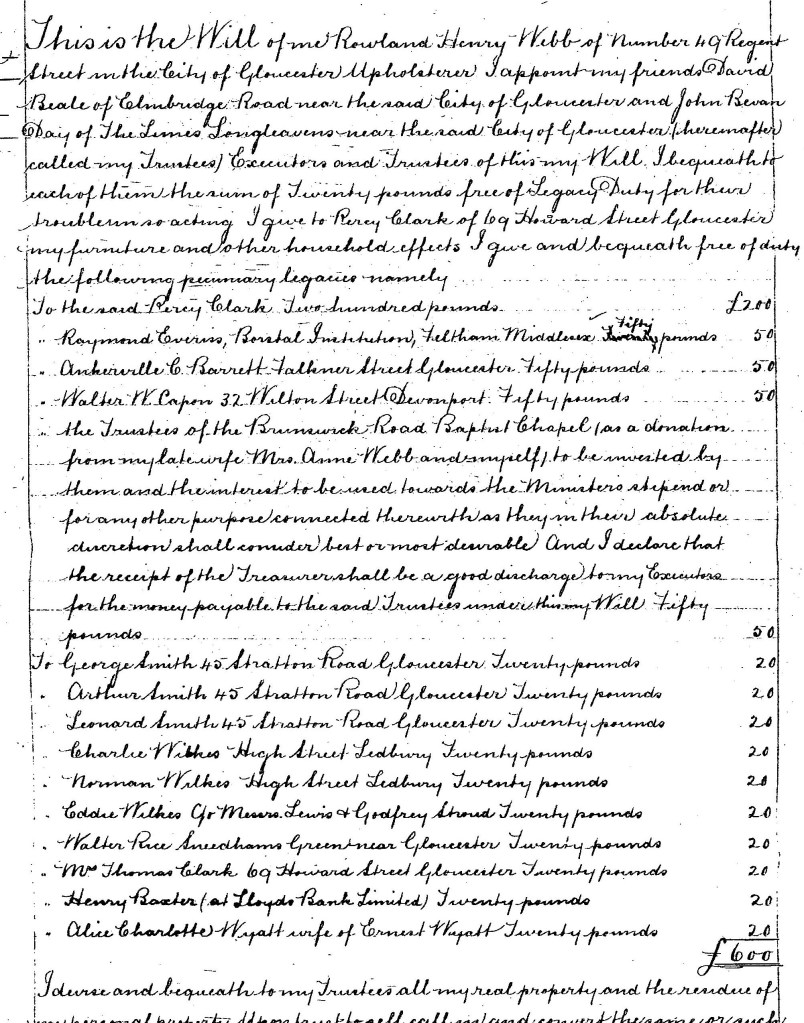 This is the Will of me Rowland Henry Webb of Number 49 Regent
Street in the City of Gloucester Upholsterer I appoint my friends David
Beale of Elmbridge Road near the said City of Gloucester and John Bevan
Day of The Limes Longleavens near the said City of Gloucester (hereinafter
called my Trustees) Executors and Trustees of this my Will I bequeath to
each of them the sum of Twenty pounds free of Legacy Duty for their
trouble in so acting I give to Percy Clark of 69 Howard Street Gloucester
my furniture and other household effects I give and bequeath free of duty
the following pecuniary legacies namely
To the said Percy Clark Two hundred pounds £200
" Raymond Everiss, Borstal Institution, Feltham Middlesex Fifty pounds 50
" Ankerville C. Barrett Falkner Street Gloucester Fifty pounds 50
" Walter W. Capon 32 Wilton Street Devonport Fifty pounds 50
" the Trustees of the Brunswick Road Baptist Chapel (as a donation
from my late wife Mrs. Anne Webb and myself) to be invested by
them and the interest to be used towards the Ministers stipend or
for any other purpose connected therewith as they in their absolute
discretion shall consider best or most desirable And I declare that
the receipt of the Treasurer shall be a good discharge to my Executors
for the money payable to the said Trustees under this my Will Fifty
pounds 50
To George Smith 45 Stratton Road Gloucester Twenty pounds 20
" Arthur Smith 45 Stratton Road Gloucester Twenty pounds 20
" Leonard Smith 45 Stratton Road Gloucester Twenty pounds 20
" Charlie Wilkes High Street Ledbury Twenty pounds 20
" Norman Wilkes High Street Ledbury Twenty pounds 20
" Eddie Wilkes C/o Messrs. Lewis & Godfrey Stroud Twenty pounds 20
" Walter Rice Sneedhams Green near Gloucester Twenty pounds 20
" Mrs Thomas Clark 69 Howard Street Gloucester Twenty pounds 20
" Henry Baxter (at Lloyds Bank Limited) Twenty pounds 20
" Alice Charlotte Wyatt wife of Ernest Wyatt Twenty pounds 20
£600
I devise and bequeath to my Trustees all my real property and the residue of
my personal property Upon trust to sell call in and convert the same or such